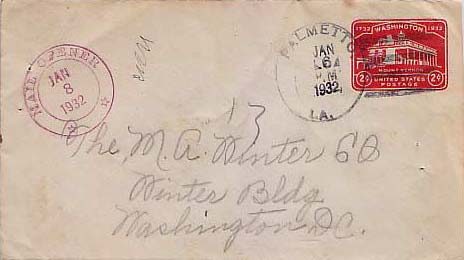 MAIL OPENER
JAN
8
1932
PALMETTO
JAN
6
P.M
1932
LA.
1732 WASHINGTON 1932
MOUNT VERNON
2¢ UNITED STATES 2¢
POSTAGE
13
The M. A. Winter Co
Winter Bldg
Washington D.C.